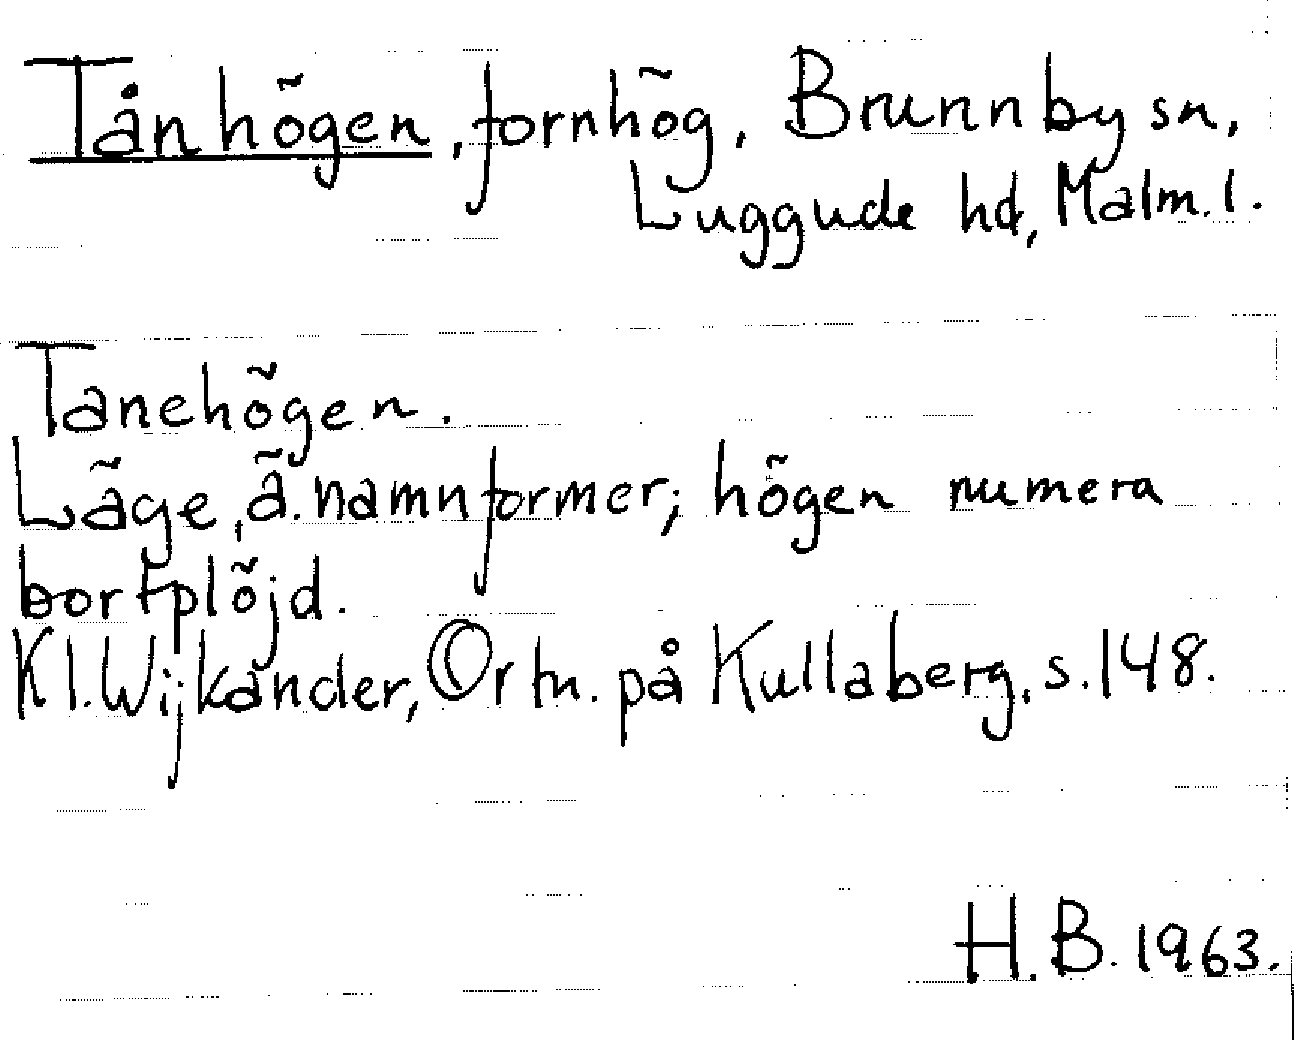 Tånhögen, fornhög, Brunnby sn,
Luggude hd, Malm. l.
Tanehögen.
Läge, ä. namnformer; högen numera
bortplöjd.
Kl. Wijkander, Ortn. på Kullaberg, s. 148.
H. B. 1963.